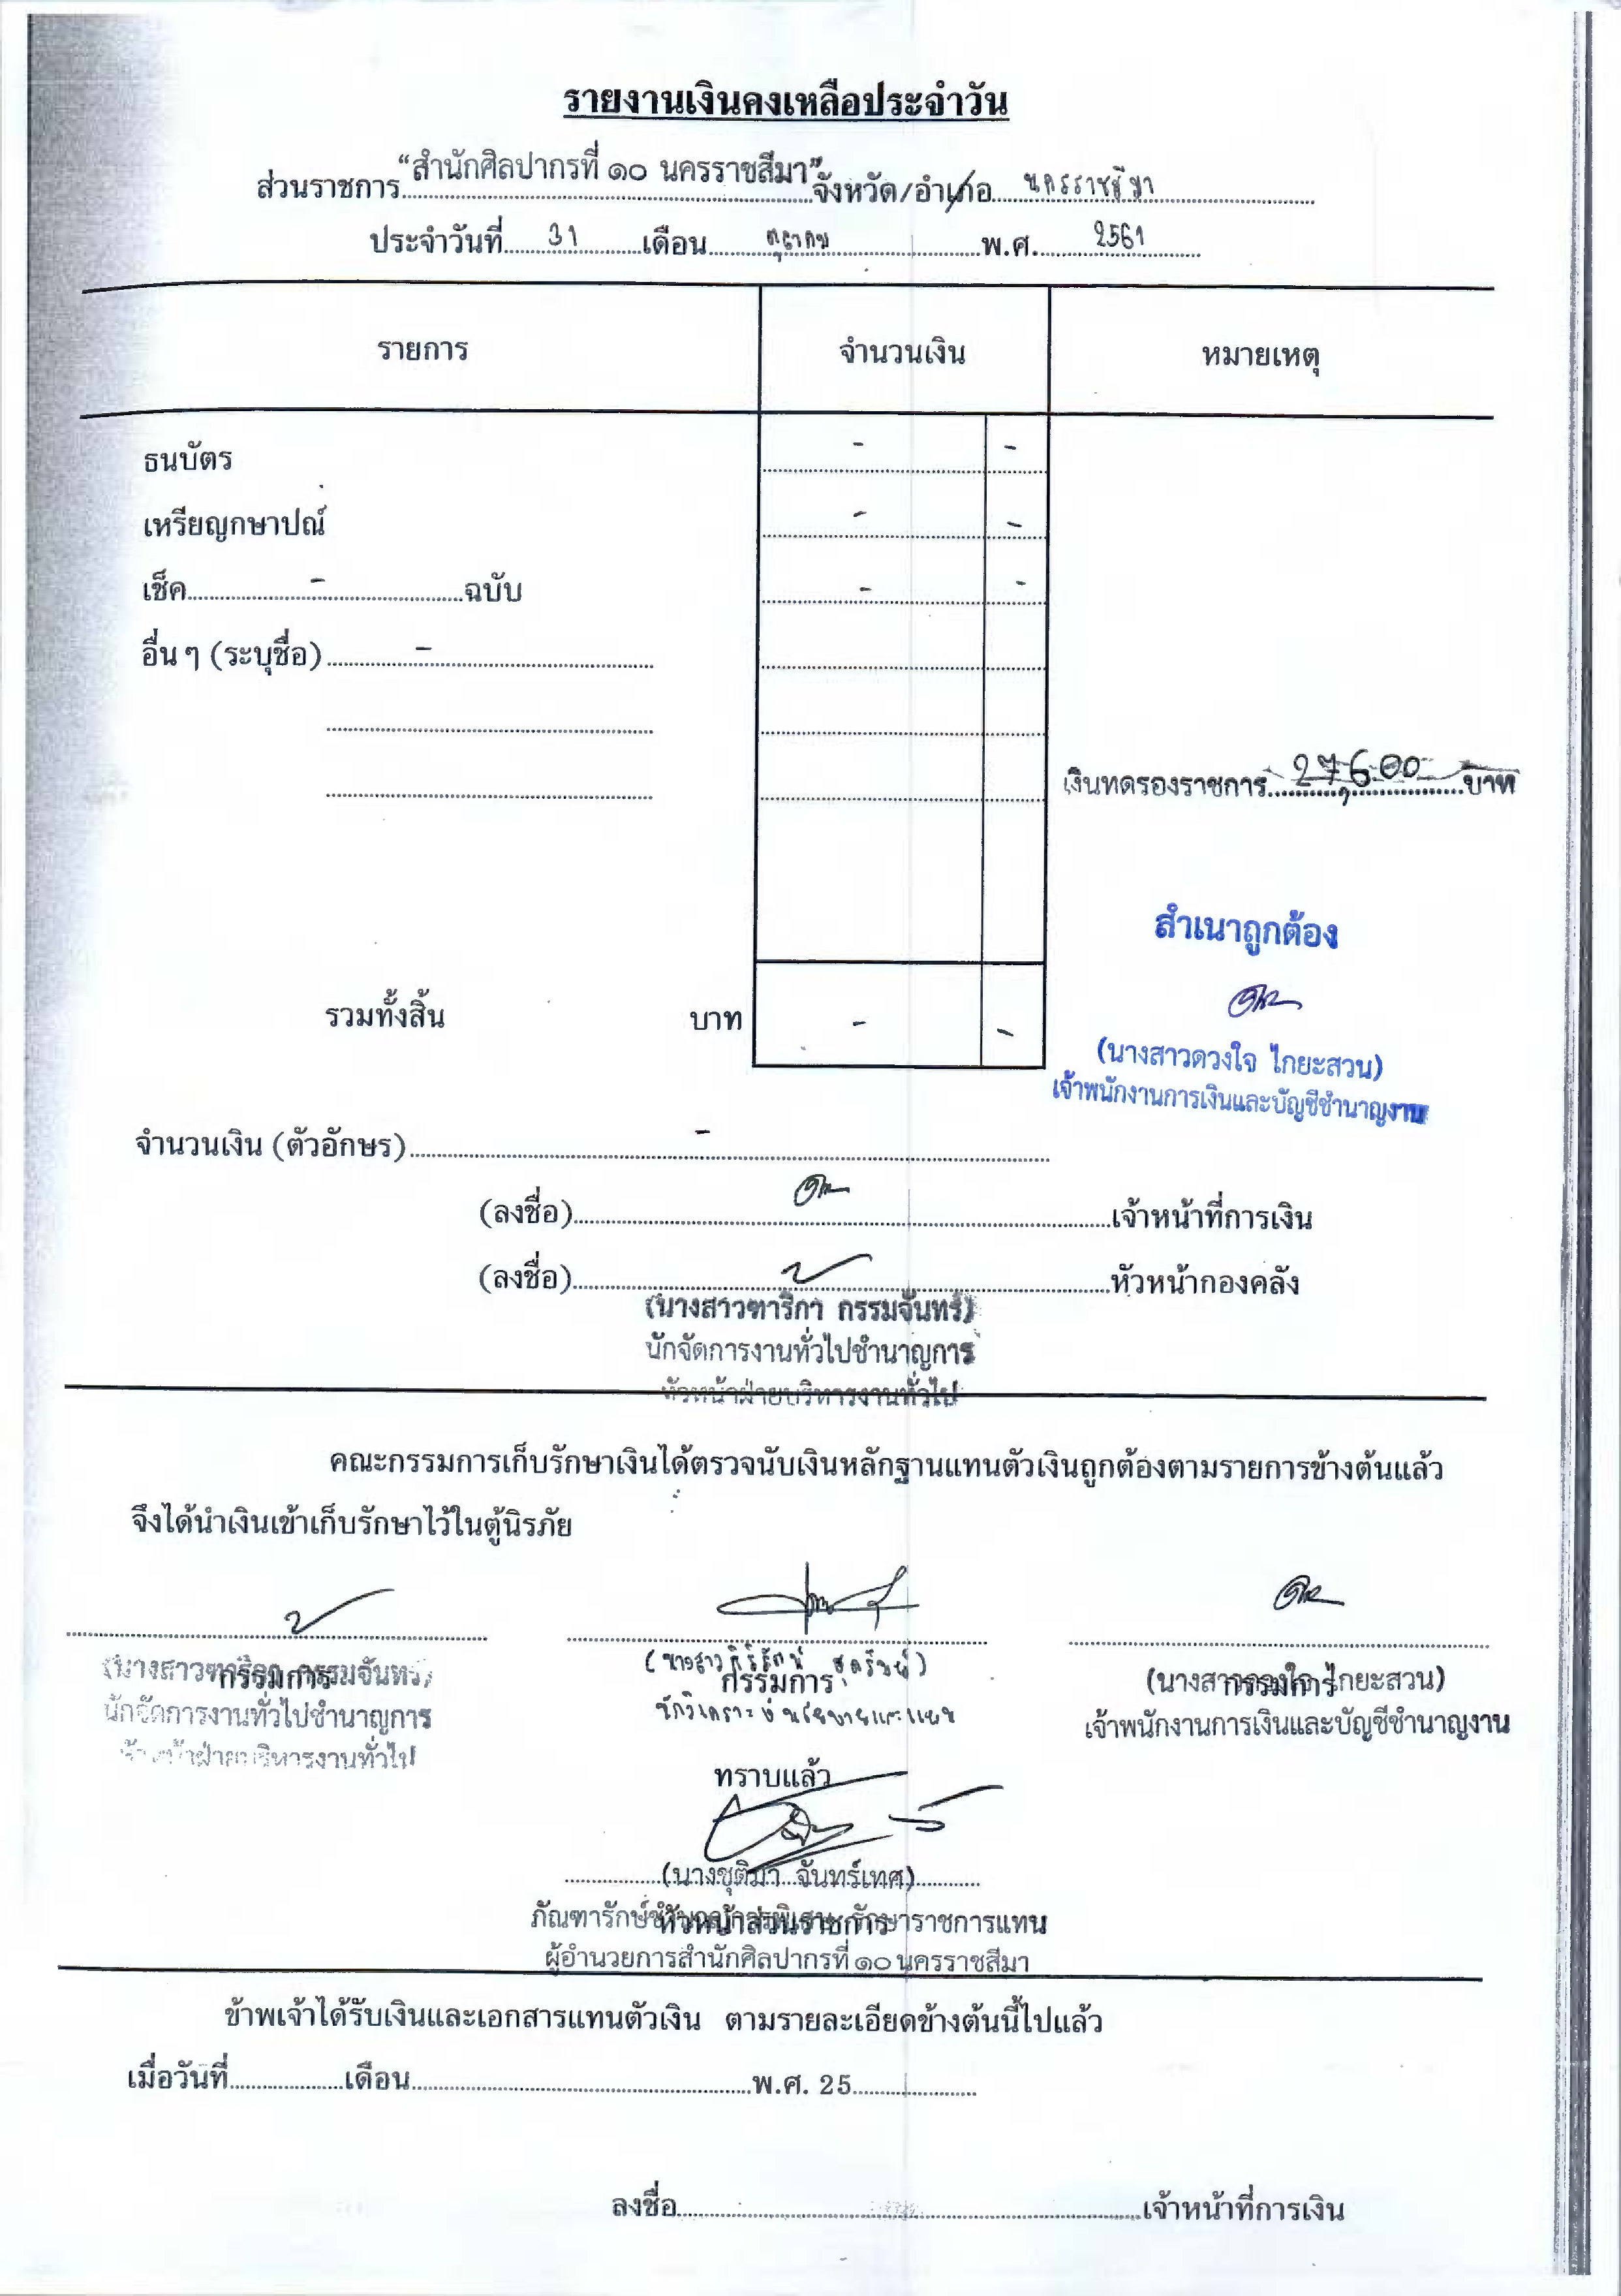 รายงานเงินคงเหลือประจำวัน
ส่วนราชการ "สำนักศิลปากรที่ ๑๐ นครราชสีมา" จังหวัด/อำเภอ นครราชสีมา
ประจำวันที่ 31 เดือน ตุลาคม พ.ศ. 2561
รายการ จำนวนเงิน หมายเหตุ
ธนบัตร - -
เหรียญกษาปณ์ - -
เช็ค - ฉบับ - -
อื่น ๆ (ระบุชื่อ) -
เงินทดรองราชการ 27,600 บาท
สำเนาถูกต้อง
รวมทั้งสิ้น บาท - -
(นางสาวดวงใจ ไกยะสวน)
เจ้าพนักงานการเงินและบัญชีชำนาญงาน
จำนวนเงิน (ตัวอักษร) -
(ลงชื่อ) เจ้าหน้าที่การเงิน
(ลงชื่อ) หัวหน้ากองคลัง
(นางสาวฑาริกา กรรมจันทร์)
นักจัดการงานทั่วไปชำนาญการ
หัวหน้าฝ่ายบริหารงานทั่วไป
คณะกรรมการเก็บรักษาเงินได้ตรวจนับเงินหลักฐานแทนตัวเงินถูกต้องตามรายการข้างต้นแล้ว
จึงได้นำเงินเข้าเก็บรักษาไว้ในตู้นิรภัย
(นางสาวฑาริกา กรรมจันทร์) (นางสาว (นางสาวดวงใจ ไกยะสวน)
กรรมการ กรรมการ กรรมการ
นักจัดการงานทั่วไปชำนาญการ นักวิเคราะห์นโยบายและแผน เจ้าพนักงานการเงินและบัญชีชำนาญงาน
หัวหน้าฝ่ายบริหารงานทั่วไป
ทราบแล้ว
(นางชุติมา จันทร์เทศ)
หัวหน้าส่วนราชการ
ภัณฑารักษ์ชำนาญการพิเศษ รักษาราชการแทน
ผู้อำนวยการสำนักศิลปากรที่ ๑๐ นครราชสีมา
ข้าพเจ้าได้รับเงินและเอกสารแทนตัวเงิน ตามรายละเอียดข้างต้นนี้ไปแล้ว
เมื่อวันที่ เดือน พ.ศ. 25
ลงชื่อ เจ้าหน้าที่การเงิน